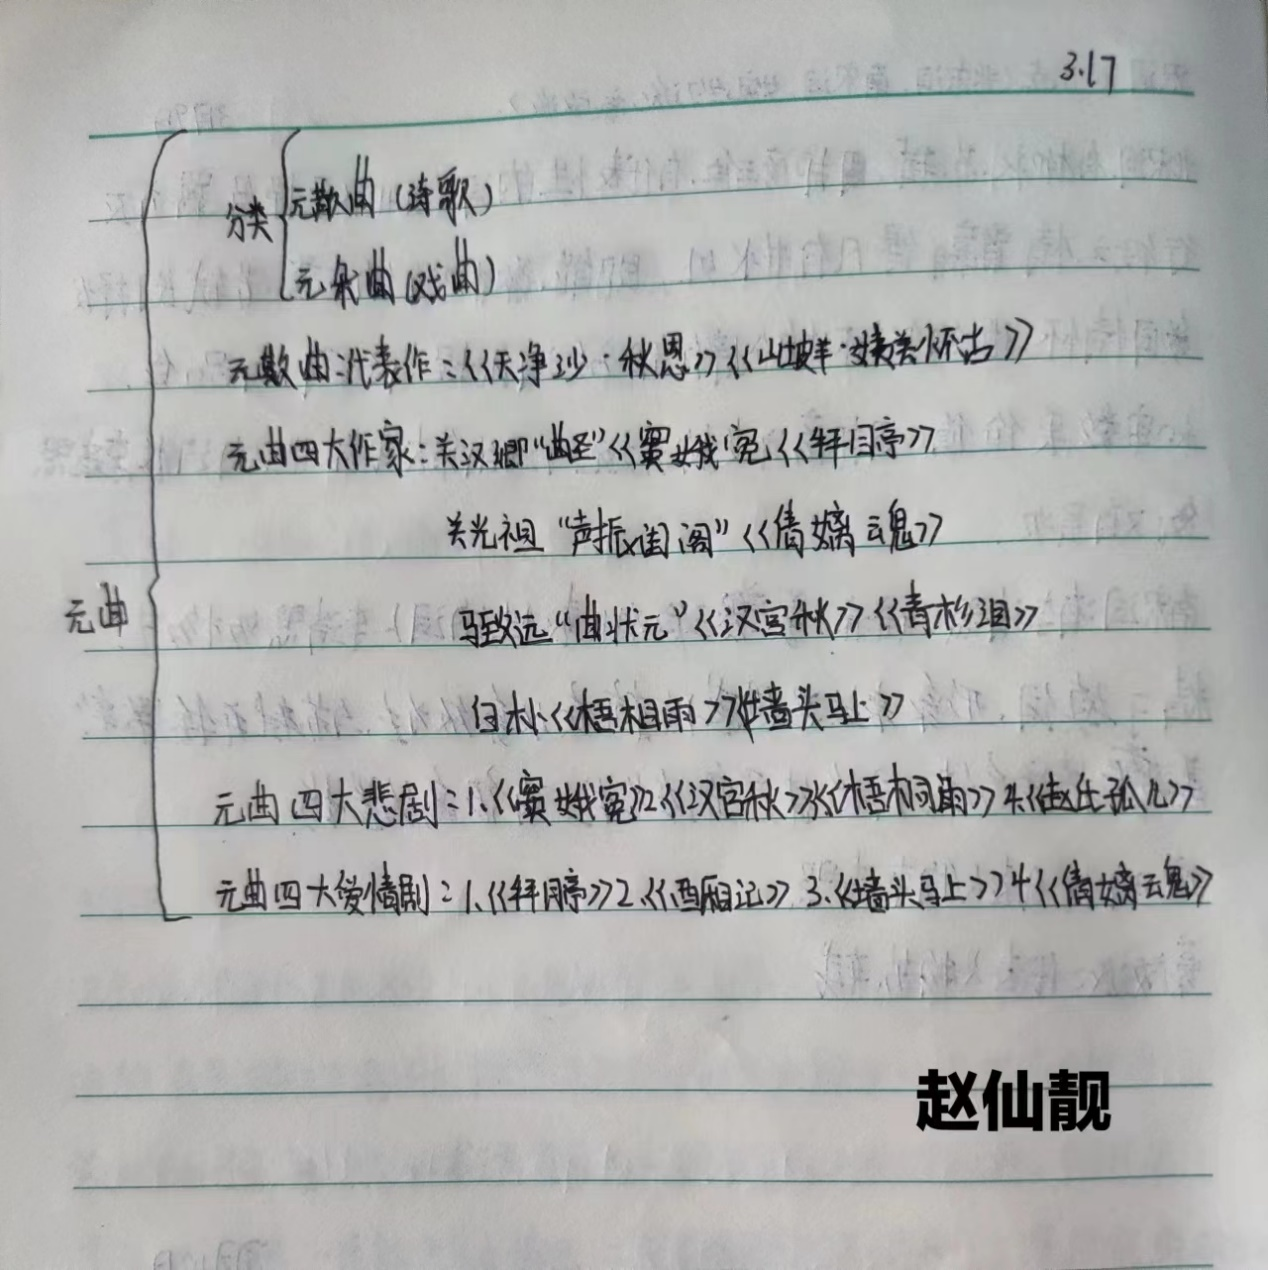 3.17
元散曲(诗歌)
分类
元杂曲(戏曲)
元散曲:代表作:《天净沙·秋思》《山坡羊·潼关怀古》
元曲四大作家:关汉卿"曲圣"《窦娥冤《拜月亭》
关光祖"声振闺阁"《倩女离魂》
元曲
马致远"曲状元"《汉宫秋》《青衫泪》
白朴《梧桐雨》《墙头马上》
元曲四大悲剧:1.《窦娥冤》2《汉宫秋》3《梧桐雨》4.《赵氏孤儿》
元曲四大爱情剧:1.《拜月亭》2.《西厢记》3.《墙头马上》4《倩女离魂》
赵仙靓